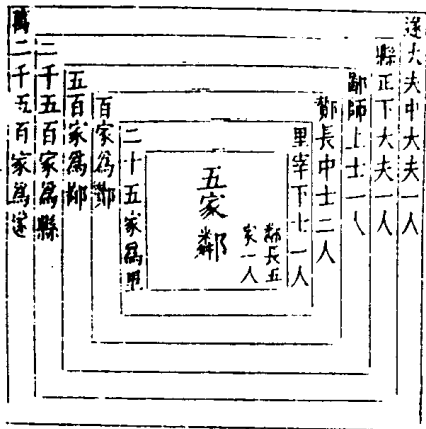 遂大夫中大夫一人
縣正下大夫一人
鄙師上士一人
酇長中士二人
里宰下士一人
鄰長五
家一人
五家鄰
二十五家爲里
百家爲酇
五百家爲鄙
二千五百家爲縣
萬二千五百家爲遂